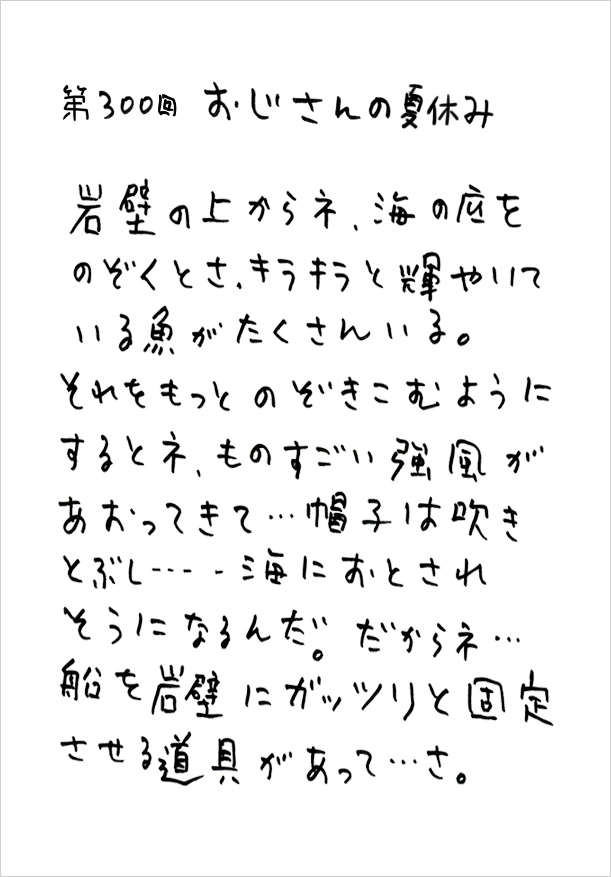 第300回 おじさんの夏休み
岩壁の上からネ、海の底を
のぞくとさ、キラキラと輝やいて
いる魚がたくさんいる。
それをもっとのぞきこむように
するとネ、ものすごい強風が
あおってきて…帽子は吹き
とぶし‥‥海におとされ
そうになるんだ。だからネ…
船を岩壁にガッツリと固定
させる道具があって…さ。